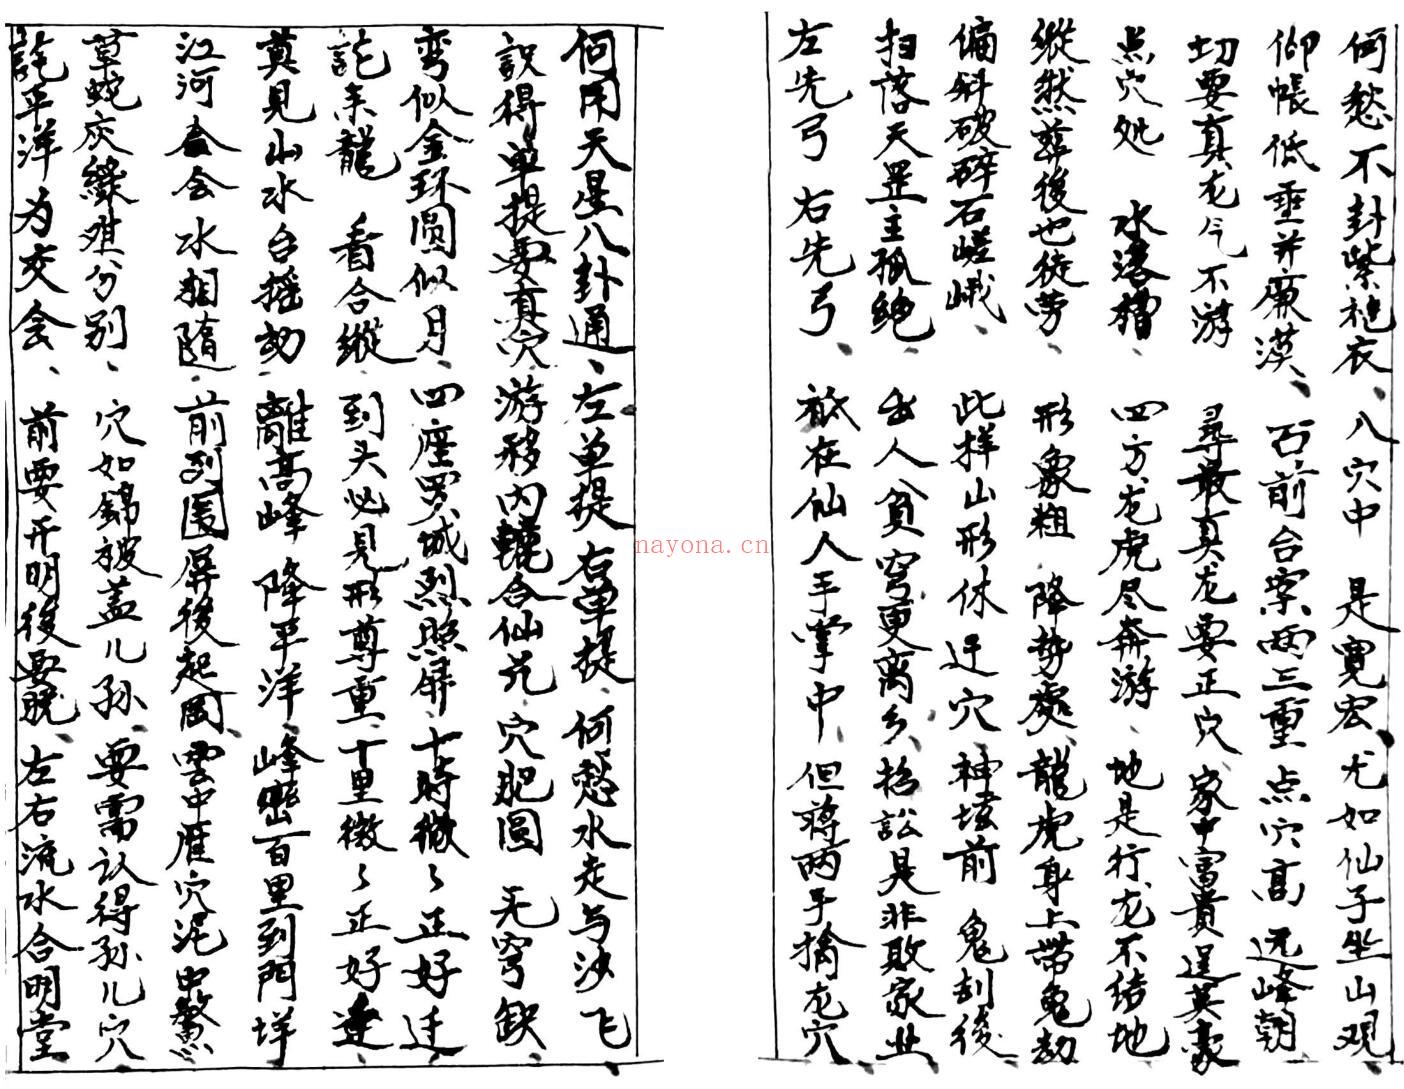 何愁不封紫袍衣、八穴中 是寬宏尤如仙子坐山观
仰帳低垂并廉漠、石前台案两三重点穴高 远峰朝
切要真龙气不游 尋最真龙要正穴 家中富貴逞英豪
点穴処 水落槽、四方龙虎尽奔游、地是行龙不结地
縱然葬後也徒劳 形象粗 降势處 龍虎身上带鬼劫
偏斜破碎石嵯峨、此样山形休迁穴 神壇前 鬼刦後
扫落天罡主孤绝 出人貧穷更离乡 招訟是非敗家业
左先弓 右先弓、祇在仙人手掌中 但蔣两手擒龙穴
何用天星八卦通、左单提 右单提、何愁水走与沙飞
識得单提要真穴 游移内轉合仙芫 穴肥圆 无穹缺
弯似金环圆似月、四座罗城烈照屏 十時微々正好迁
認来龍 看合縱 到头必見形尊重、十里微々正好逢
莫見山水台摇动 離高峰 降平洋 峰巒百里到門垟
江河会会水相随、前列围屏後起岡、雲中雁穴泥中鰲
草蛇灰線难分别、穴如錦被盖儿孙、要需认得孙儿穴
認平洋为交会、前要开明後要脱、左右流水合明堂
nayona.cn